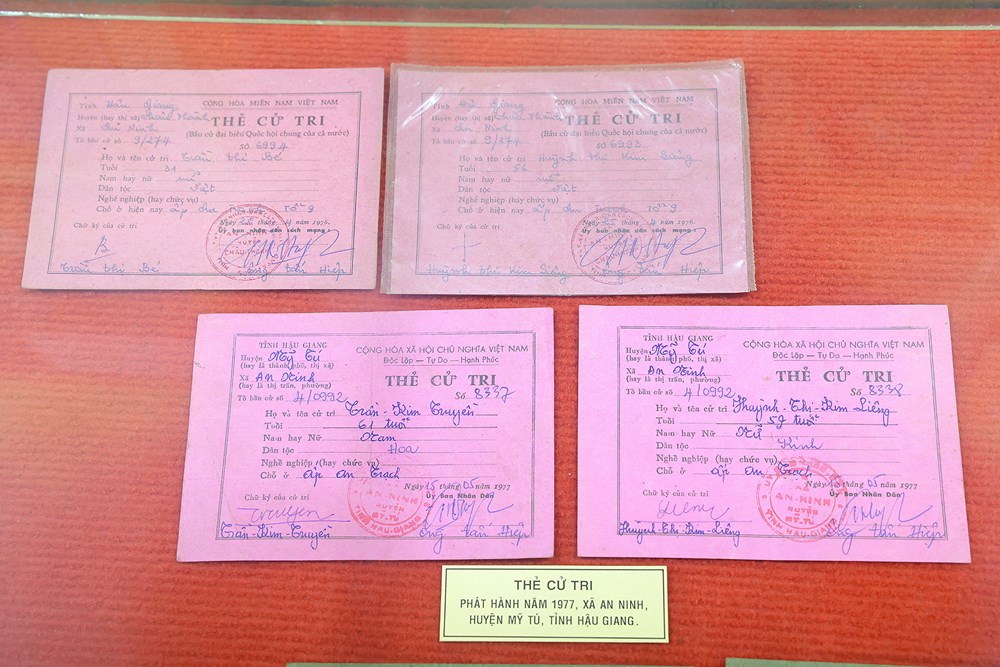 Tỉnh Hậu Giang
CỘNG HÒA MIỀN NAM VIỆT NAM
Huyện (hay thị xã) Châu Thành
THẺ CỬ TRI
Xã An Ninh
(Bầu cử đại biểu Quốc hội chung của cả nước)
Tổ bầu cử số 9/274
SỐ 6994
Họ và tên cử tri Trần thị Bé
Tuổi 31
Nam hay nữ nữ
Dân tộc Việt
Nghề nghiệp (hay chức vụ)
Chỗ ở hiện nay ấp An
Tổ 9
Ngày 25 tháng 4 năm 1976
Chữ ký của cử tri
Ủy ban nhân dân cách mạng
B
Trần thị Bé
Ông Văn Hiệp
Tỉnh Hậu Giang
CỘNG HÒA MIỀN NAM VIỆT NAM
Huyện (hay thị xã) Châu Thành
THẺ CỬ TRI
Xã An Ninh
(Bầu cử đại biểu Quốc hội chung của cả nước)
Tổ bầu cử số 9/274
SỐ 6993
Họ và tên cử tri Huỳnh thị Kim Liêng
Tuổi 56
Nam hay nữ nữ
Dân tộc Việt
Nghề nghiệp (hay chức vụ)
Chỗ ở hiện nay ấp An Trạch Tổ 9
Ngày 25 tháng 4 năm 1976
Chữ ký của cử tri
Ủy ban nhân dân cách mạng
+
Huỳnh thị Kim Liêng
Ông Văn Hiệp
TỈNH HẬU GIANG
CỘNG HÒA XÃ HỘI CHỦ NGHĨA VIỆT NAM
Huyện Mỹ Tú
Độc Lập — Tự Do — Hạnh Phúc
(hay là thành phố, thị xã)
Xã An Ninh
THẺ CỬ TRI
(hay là thị trấn, phường)
Tổ bầu cử số 4/0992
Số 8337
Họ và tên cử tri Trần-Kim Truyền
Tuổi 61 tuổi
Nam hay Nữ Nam
Dân tộc Hoa
Nghề nghiệp (hay chức vụ)
Chỗ ở ấp An Trạch
Ngày 15 tháng 05 năm 1977
Chữ ký của cử tri
Ủy Ban Nhân Dân
XÃ
AN-NINH
HUYỆN
MỸ-TÚ
TỈNH HẬU-GIANG
Truyền
Trần-Kim-Truyền
Ông Văn Hiệp
TỈNH HẬU GIANG
CỘNG HÒA XÃ HỘI CHỦ NGHĨA VIỆT NAM
Huyện Mỹ Tú
Độc Lập — Tự Do — Hạnh Phúc
(hay là thành phố, thị xã)
Xã An Ninh
THẺ CỬ TRI
(hay là thị trấn, phường)
Tổ bầu cử số 4/0992
Số 8338
Họ và tên cử tri Huỳnh-Thị-Kim Liêng
Tuổi 59 tuổi
Nam hay Nữ Nữ
Dân tộc Kinh
Nghề nghiệp (hay chức vụ)
Chỗ ở ấp An Trạch
Ngày 15 tháng 05 năm 1977
Chữ ký của cử tri
Ủy Ban Nhân Dân
XÃ
AN-NINH
HUYỆN
MỸ-TÚ
TỈNH HẬU-GIANG
Liêng
Huỳnh-Thị-Kim-Liêng
Ông Văn Hiệp
THẺ CỬ TRI
PHÁT HÀNH NĂM 1977, XÃ AN NINH,
HUYỆN MỸ TÚ, TỈNH HẬU GIANG.